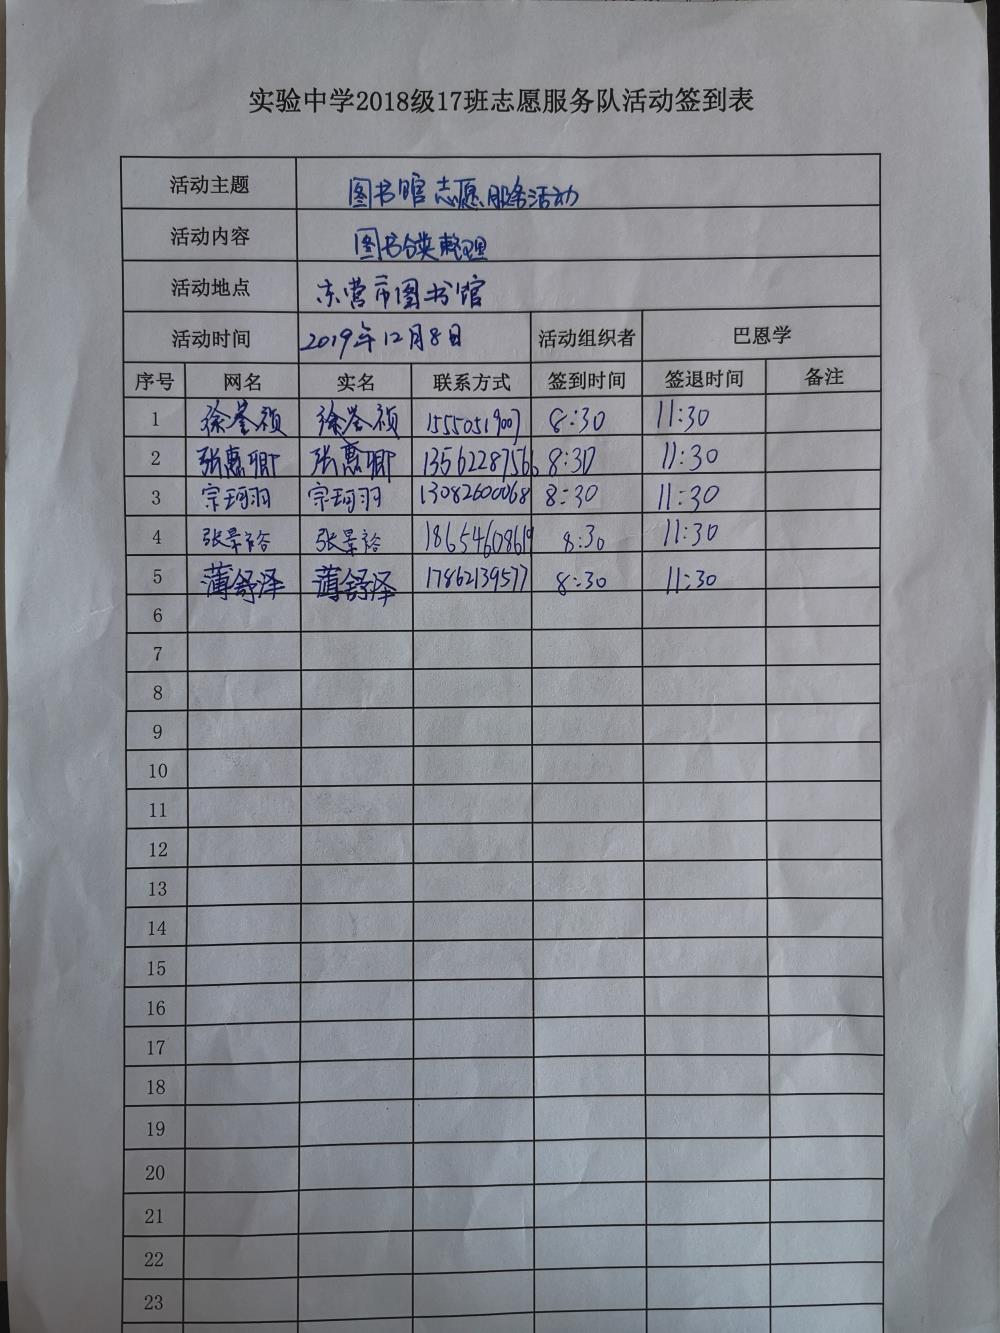 实验中学2018级17班志愿服务队活动签到表
活动主题 图书馆志愿服务活动
活动内容 图书分类整理
活动地点 东营市图书馆
活动时间 2019年12月8日 活动组织者 巴恩学
序号 网名 实名 联系方式 签到时间 签退时间 备注
1 徐荃祯 徐荃祯 15550519007 8:30 11:30
2 张惠卿 张惠卿 13562287566 8:30 11:30
3 宗珂羽 宗珂羽 13082600068 8:30 11:30
4 张景裕 张景裕 8:30 11:30
5 薄舒泽 薄舒泽 17862139577 8:30 11:30
6
7
8
9
10
11
12
13
14
15
16
17
18
19
20
21
22
23